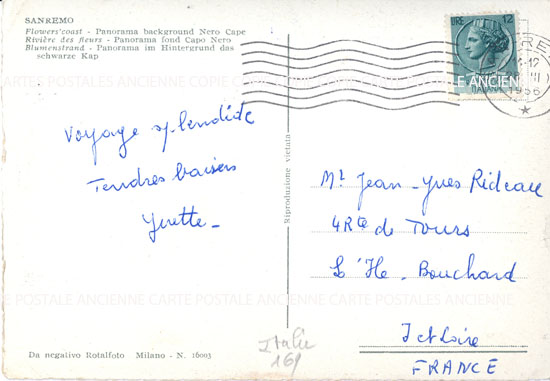 SANREMO
Flowers'coast - Panorama background Nero Cape
Rivière des fleurs - Panorama fond Capo Nero
Blumenstrand - Panorama im Hintergrund das
schwarze Kap
LIRE 12
1956
CARTES POSTALES ANCIENNE
Voyage splendide
Tendres baisers
Yvette -
Riproduzione vietata
Mr Jean-Yves Rideau
4 Rte de Tours
L'Ile-Bouchard
I et Loire
FRANCE
CARTE POSTALE ANCIENNE CARTE POSTALE ANCIENNE
Italie
169
Da negativo Rotalfoto Milano - N. 16093